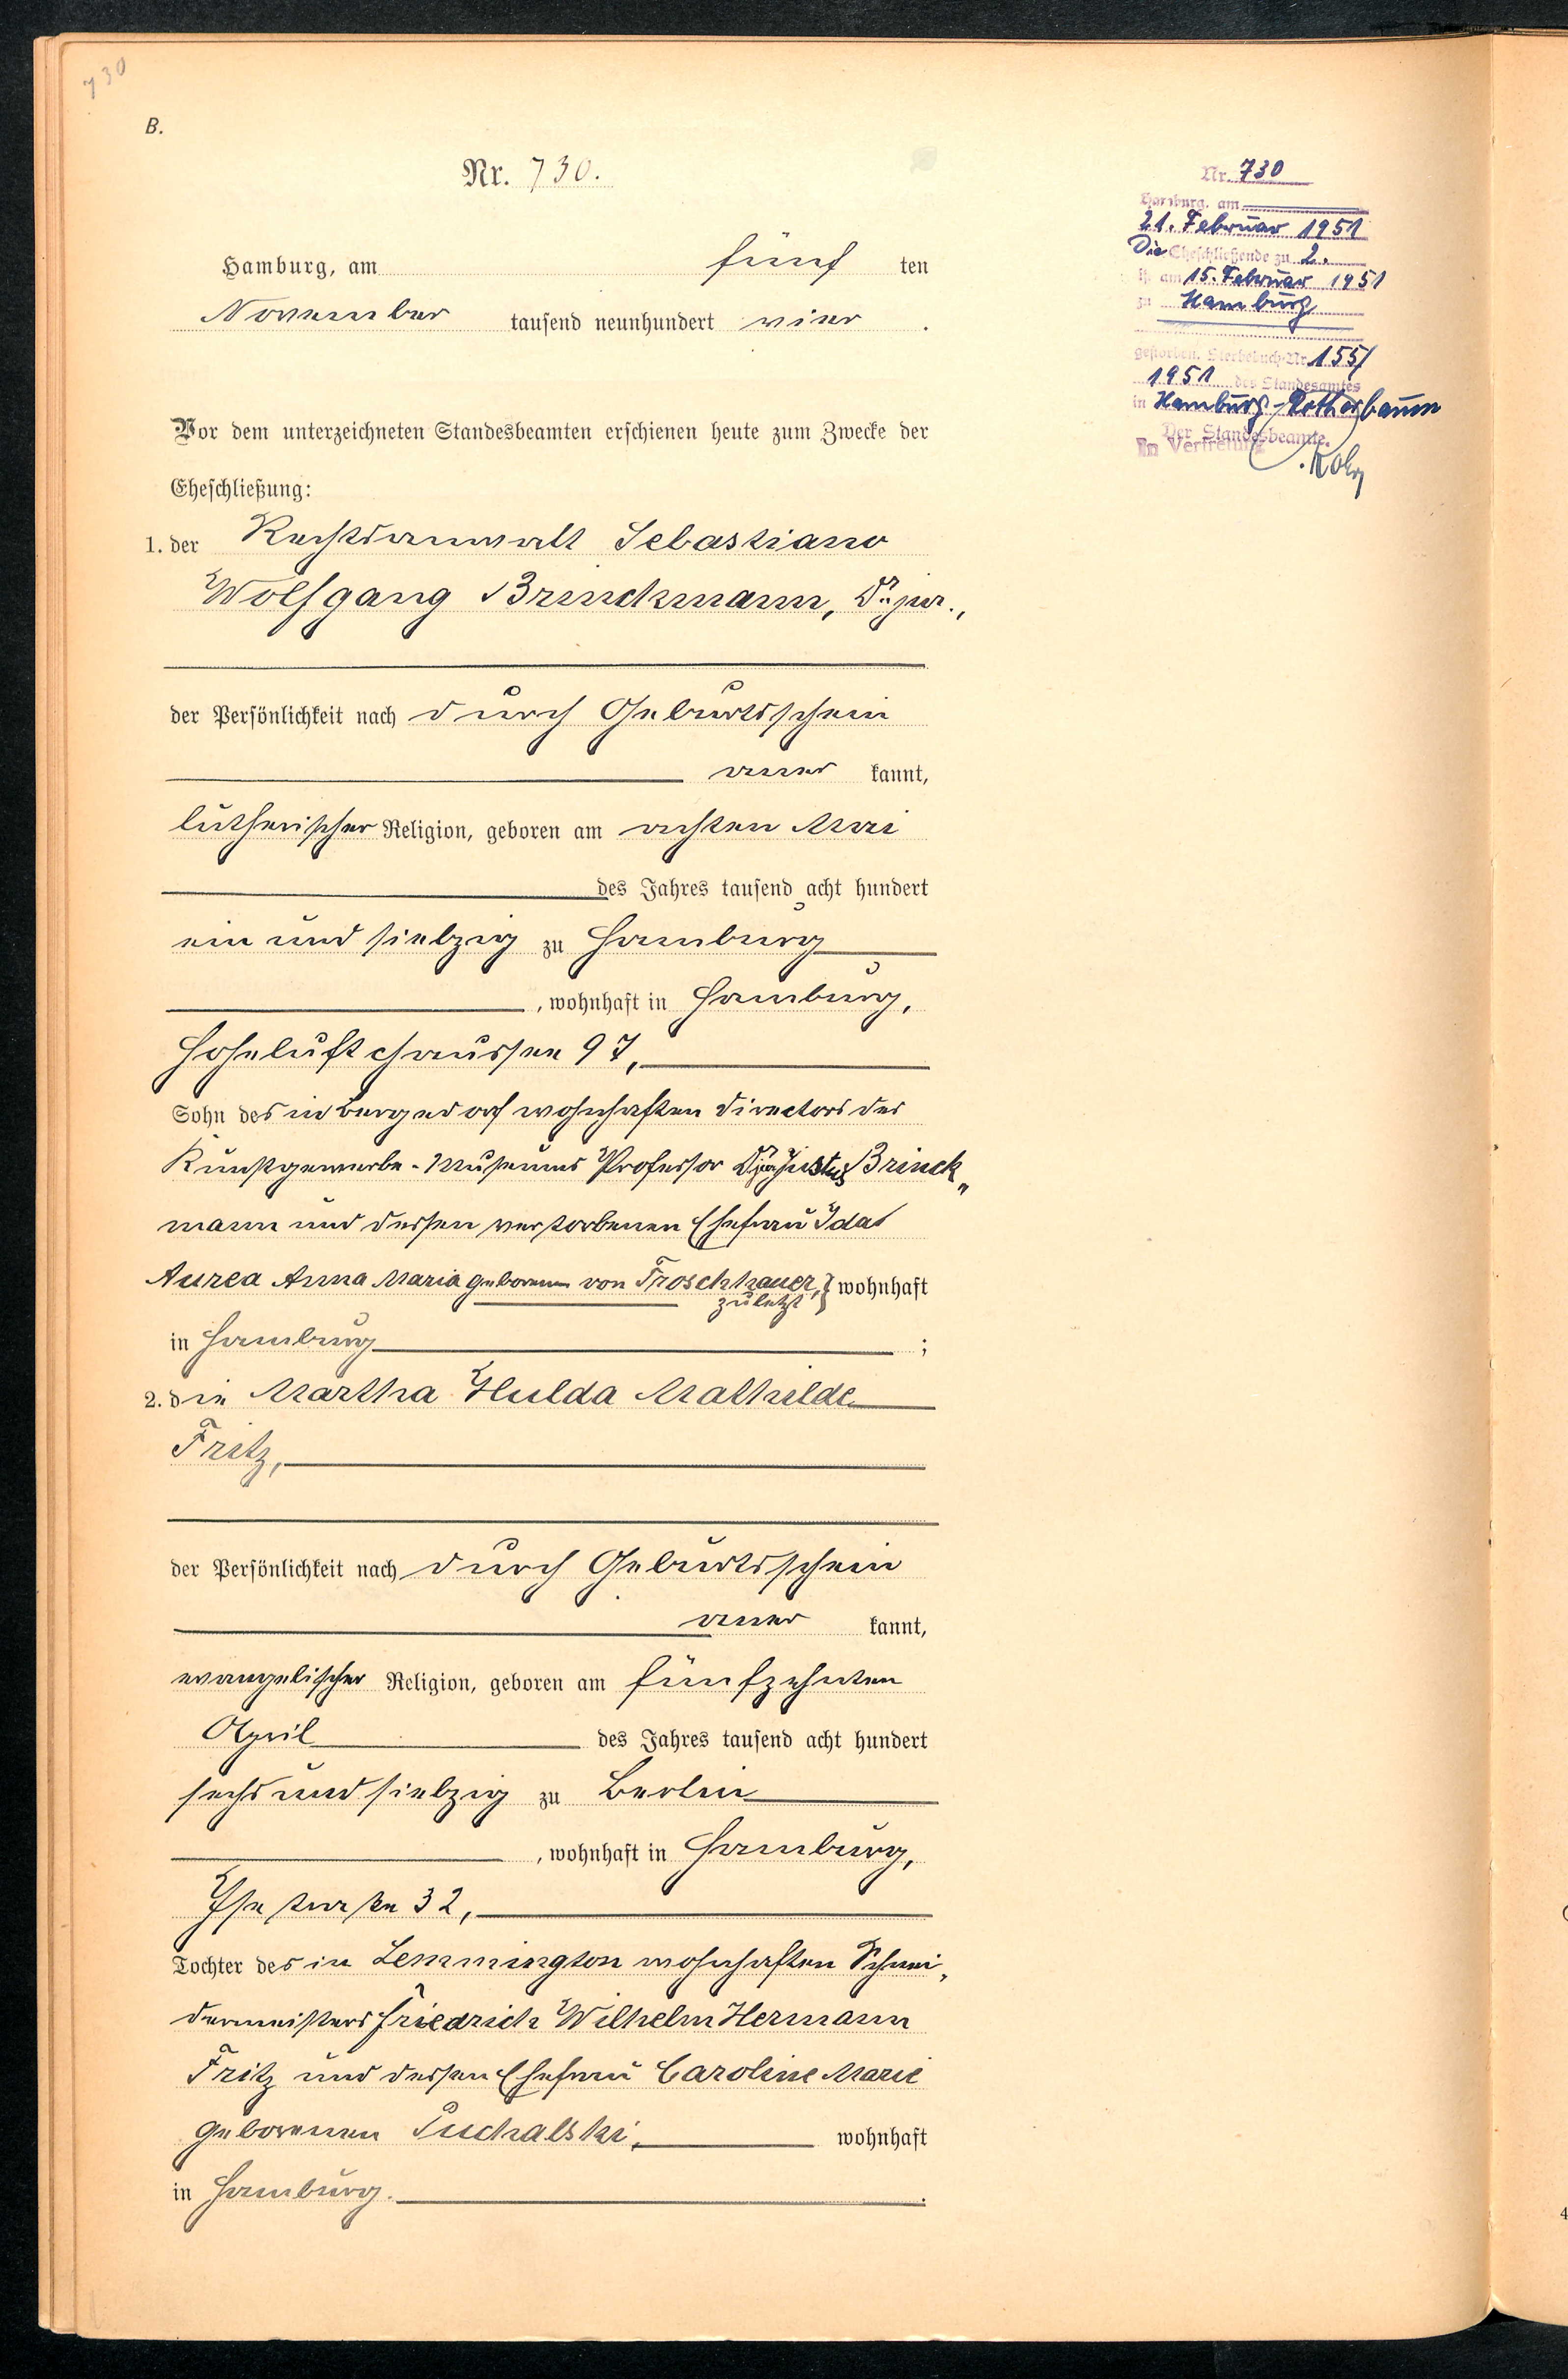 730
B.
Nr. 730.
Hamburg, am fünf ten
November tausend neunhundert vier .
Vor dem unterzeichneten Standesbeamten erschienen heute zum Zwecke der
Eheschließung:
1. der Rechtsanwalt Sebastiano
Wolfgang Brinckmann, Dr. jur.,
der Persönlichkeit nach durch Geburtsschein
aner kannt,
lutherischer Religion, geboren am achten Mai
des Jahres tausend acht hundert
ein und siebzig zu Hamburg
, wohnhaft in Hamburg,
Hoheluftchaussee 97,
Sohn des in Bergedorf wohnhaften Directors des
Kunstgewerbe-Museums Professor Dr. jur. Justus Brinck„
mann und dessen verstorbenen Ehefrau Ida
Aurea Anna Maria geborenen von Froschhauer, } wohnhaft
zuletzt
in Hamburg ;
2. die Martha Hulda Mathilde
Fritz,
der Persönlichkeit nach durch Geburtsschein
aner kannt,
evangelischer Religion, geboren am fünfzehnten
April des Jahres tausend acht hundert
sechs und siebzig zu Berlin
, wohnhaft in Hamburg,
Isestraße 32,
Tochter des in Lemmington wohnhaften Schnei„
dermeisters Friedrich Wilhelm Hermann
Fritz und dessen Ehefrau Caroline Marie
geborenen Puchalski, wohnhaft
in Hamburg.
Nr. 730
Hamburg, am
21. Februar 1951
Die Eheschließende zu 2.
ist am 15. Februar 1951
zu Hamburg
gestorben. Sterbebuch-Nr. 155/
1951 des Standesamtes
in Hamburg-Rotherbaum
Der Standesbeamte.
In Vertretung